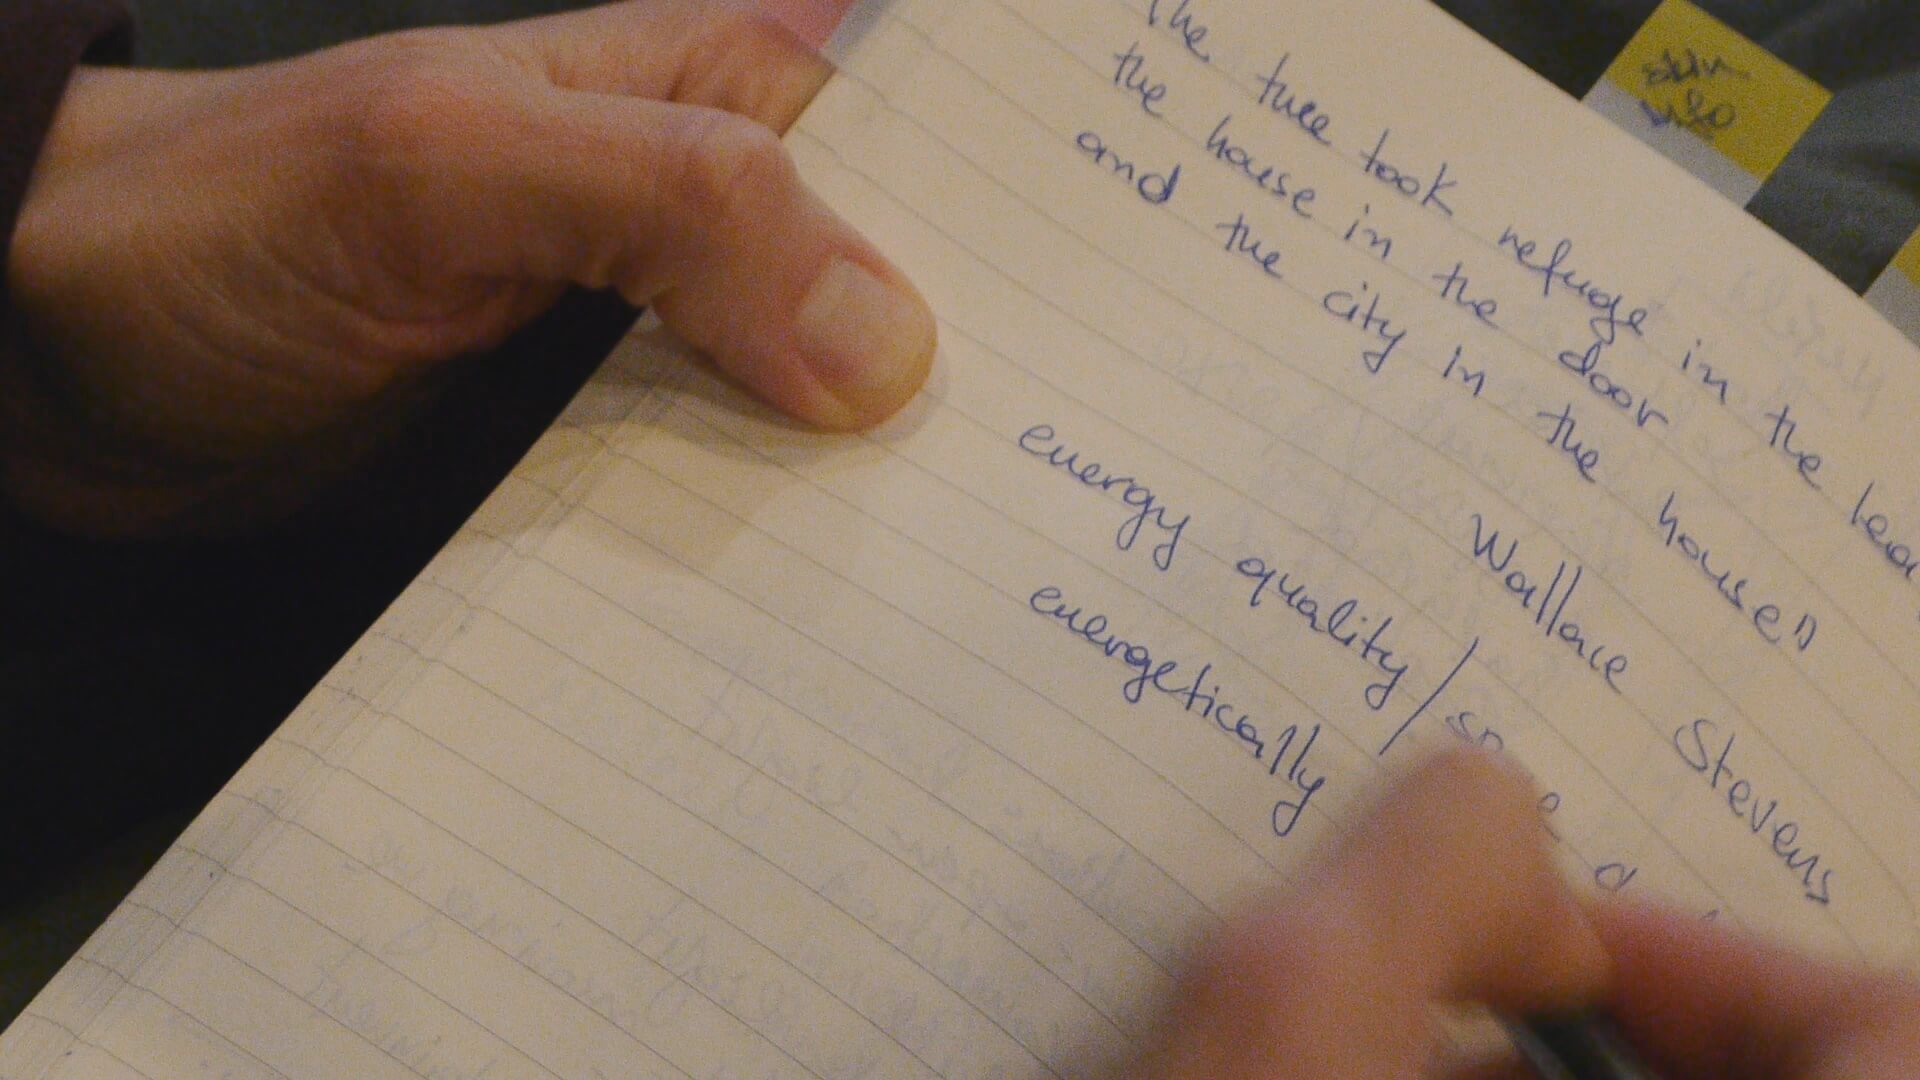 The tree took refuge in the lea
the house in the door
and the city in the house"
Wallace Stevens
energy quality/
energetically